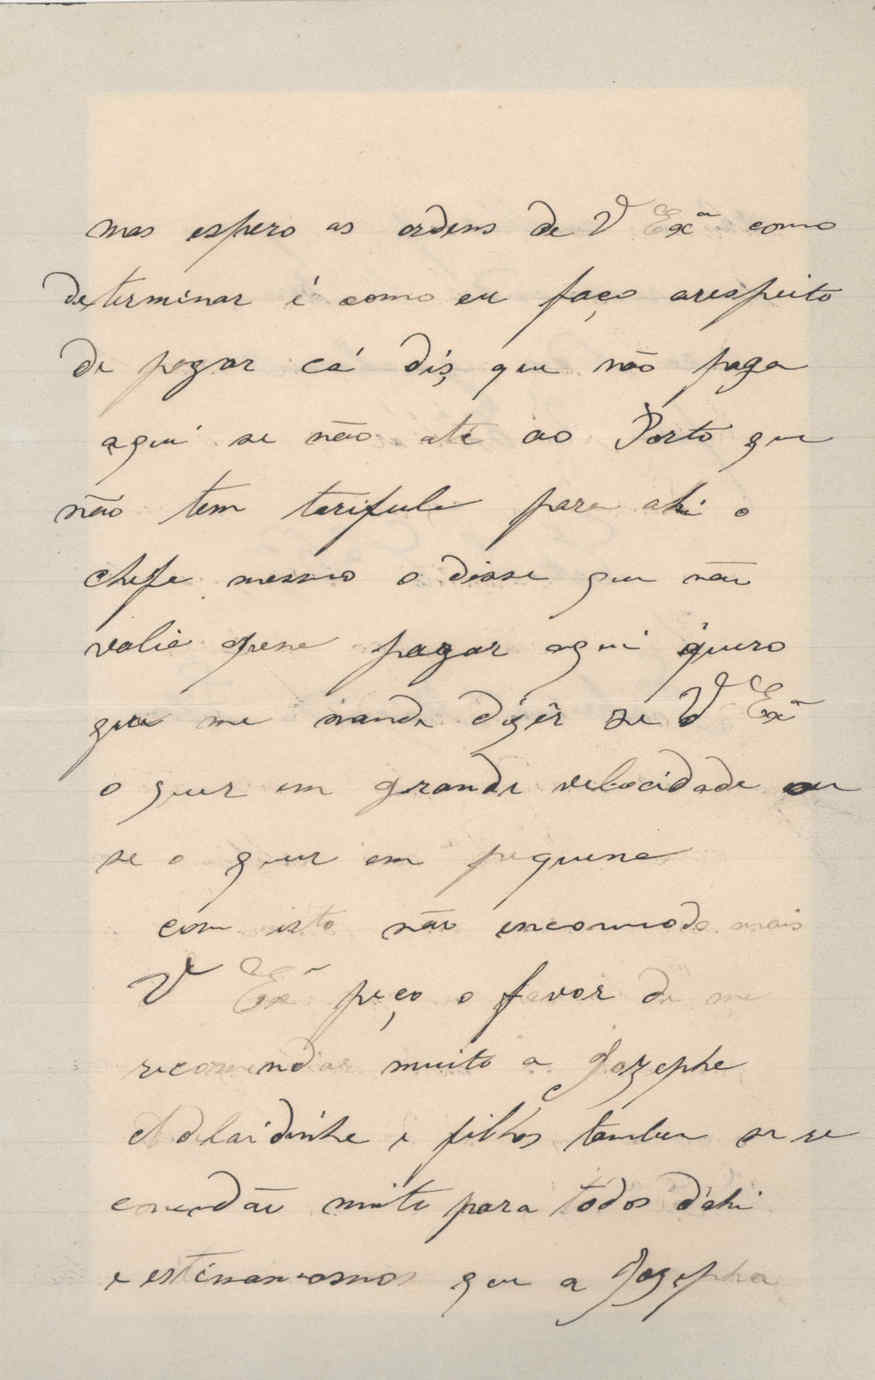 mas espero as ordens de V Exª como
determinar é como eu faço arespeito
de pagar cá dis que não paga
aqui se não até ao Porto que
não tem tarifula para ahi o
chefe mesmo o disse que não
valia apena pagar aqui quero
que me mande dizêr se V Exª
o quer em grande velocidade ou
se o quer em pequena
com isto não incomodo mais
V Exª peço o favor de me
recomendar muito a Jozepha
Adelaidinha e filhos tambem se re
comendão muito para tódos d'ahi
e estimaremos que a Jozepha